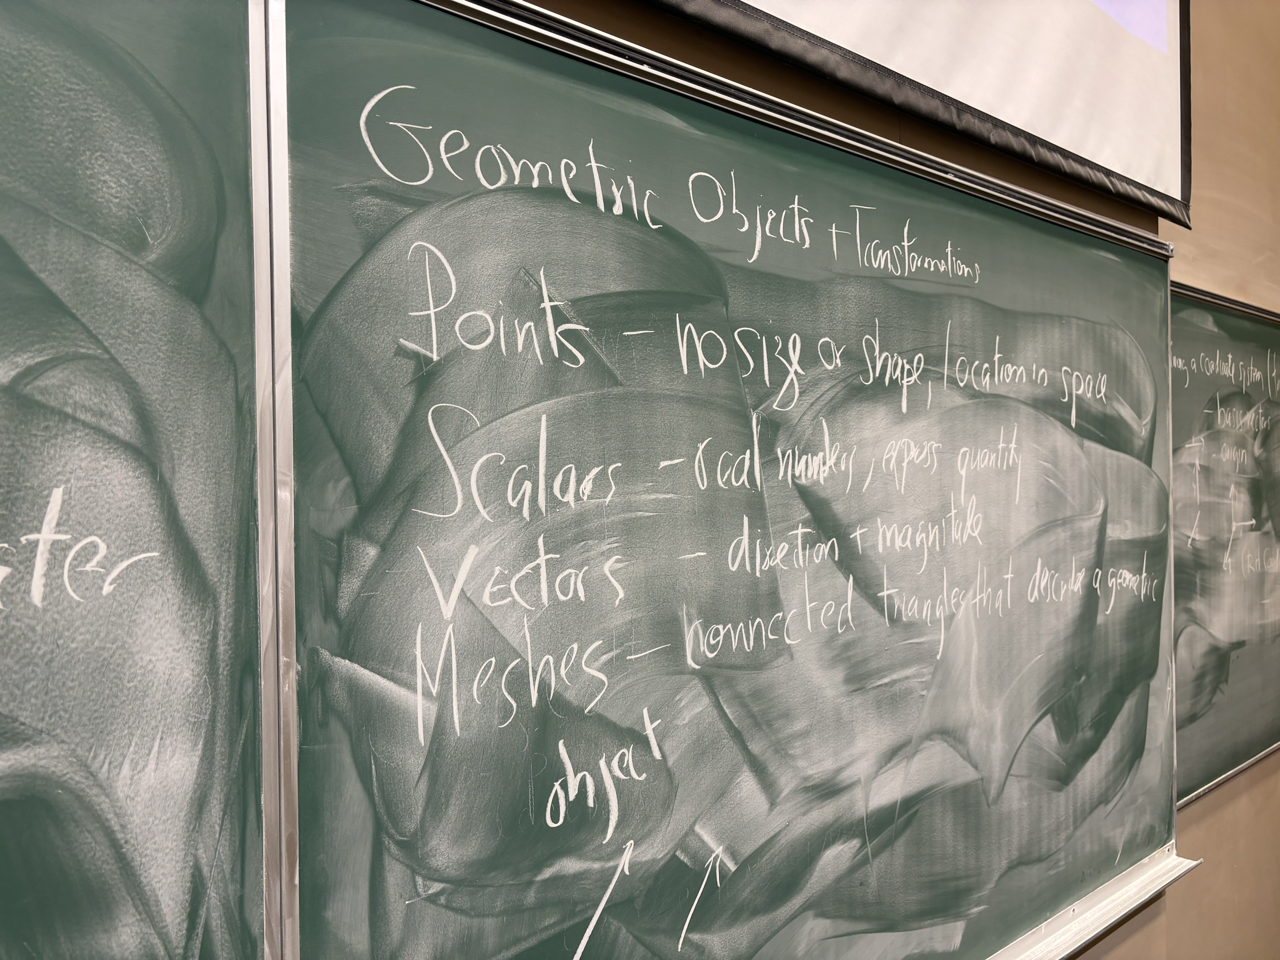 ster
Geometric Objects + Transformations
Points - no size or shape, location in space
Scalars - real numbers, express quantity
Vectors - direction + magnitude
Meshes - connected triangles that describe a geometric
object
a coordinate system
- basis vectors
- origin